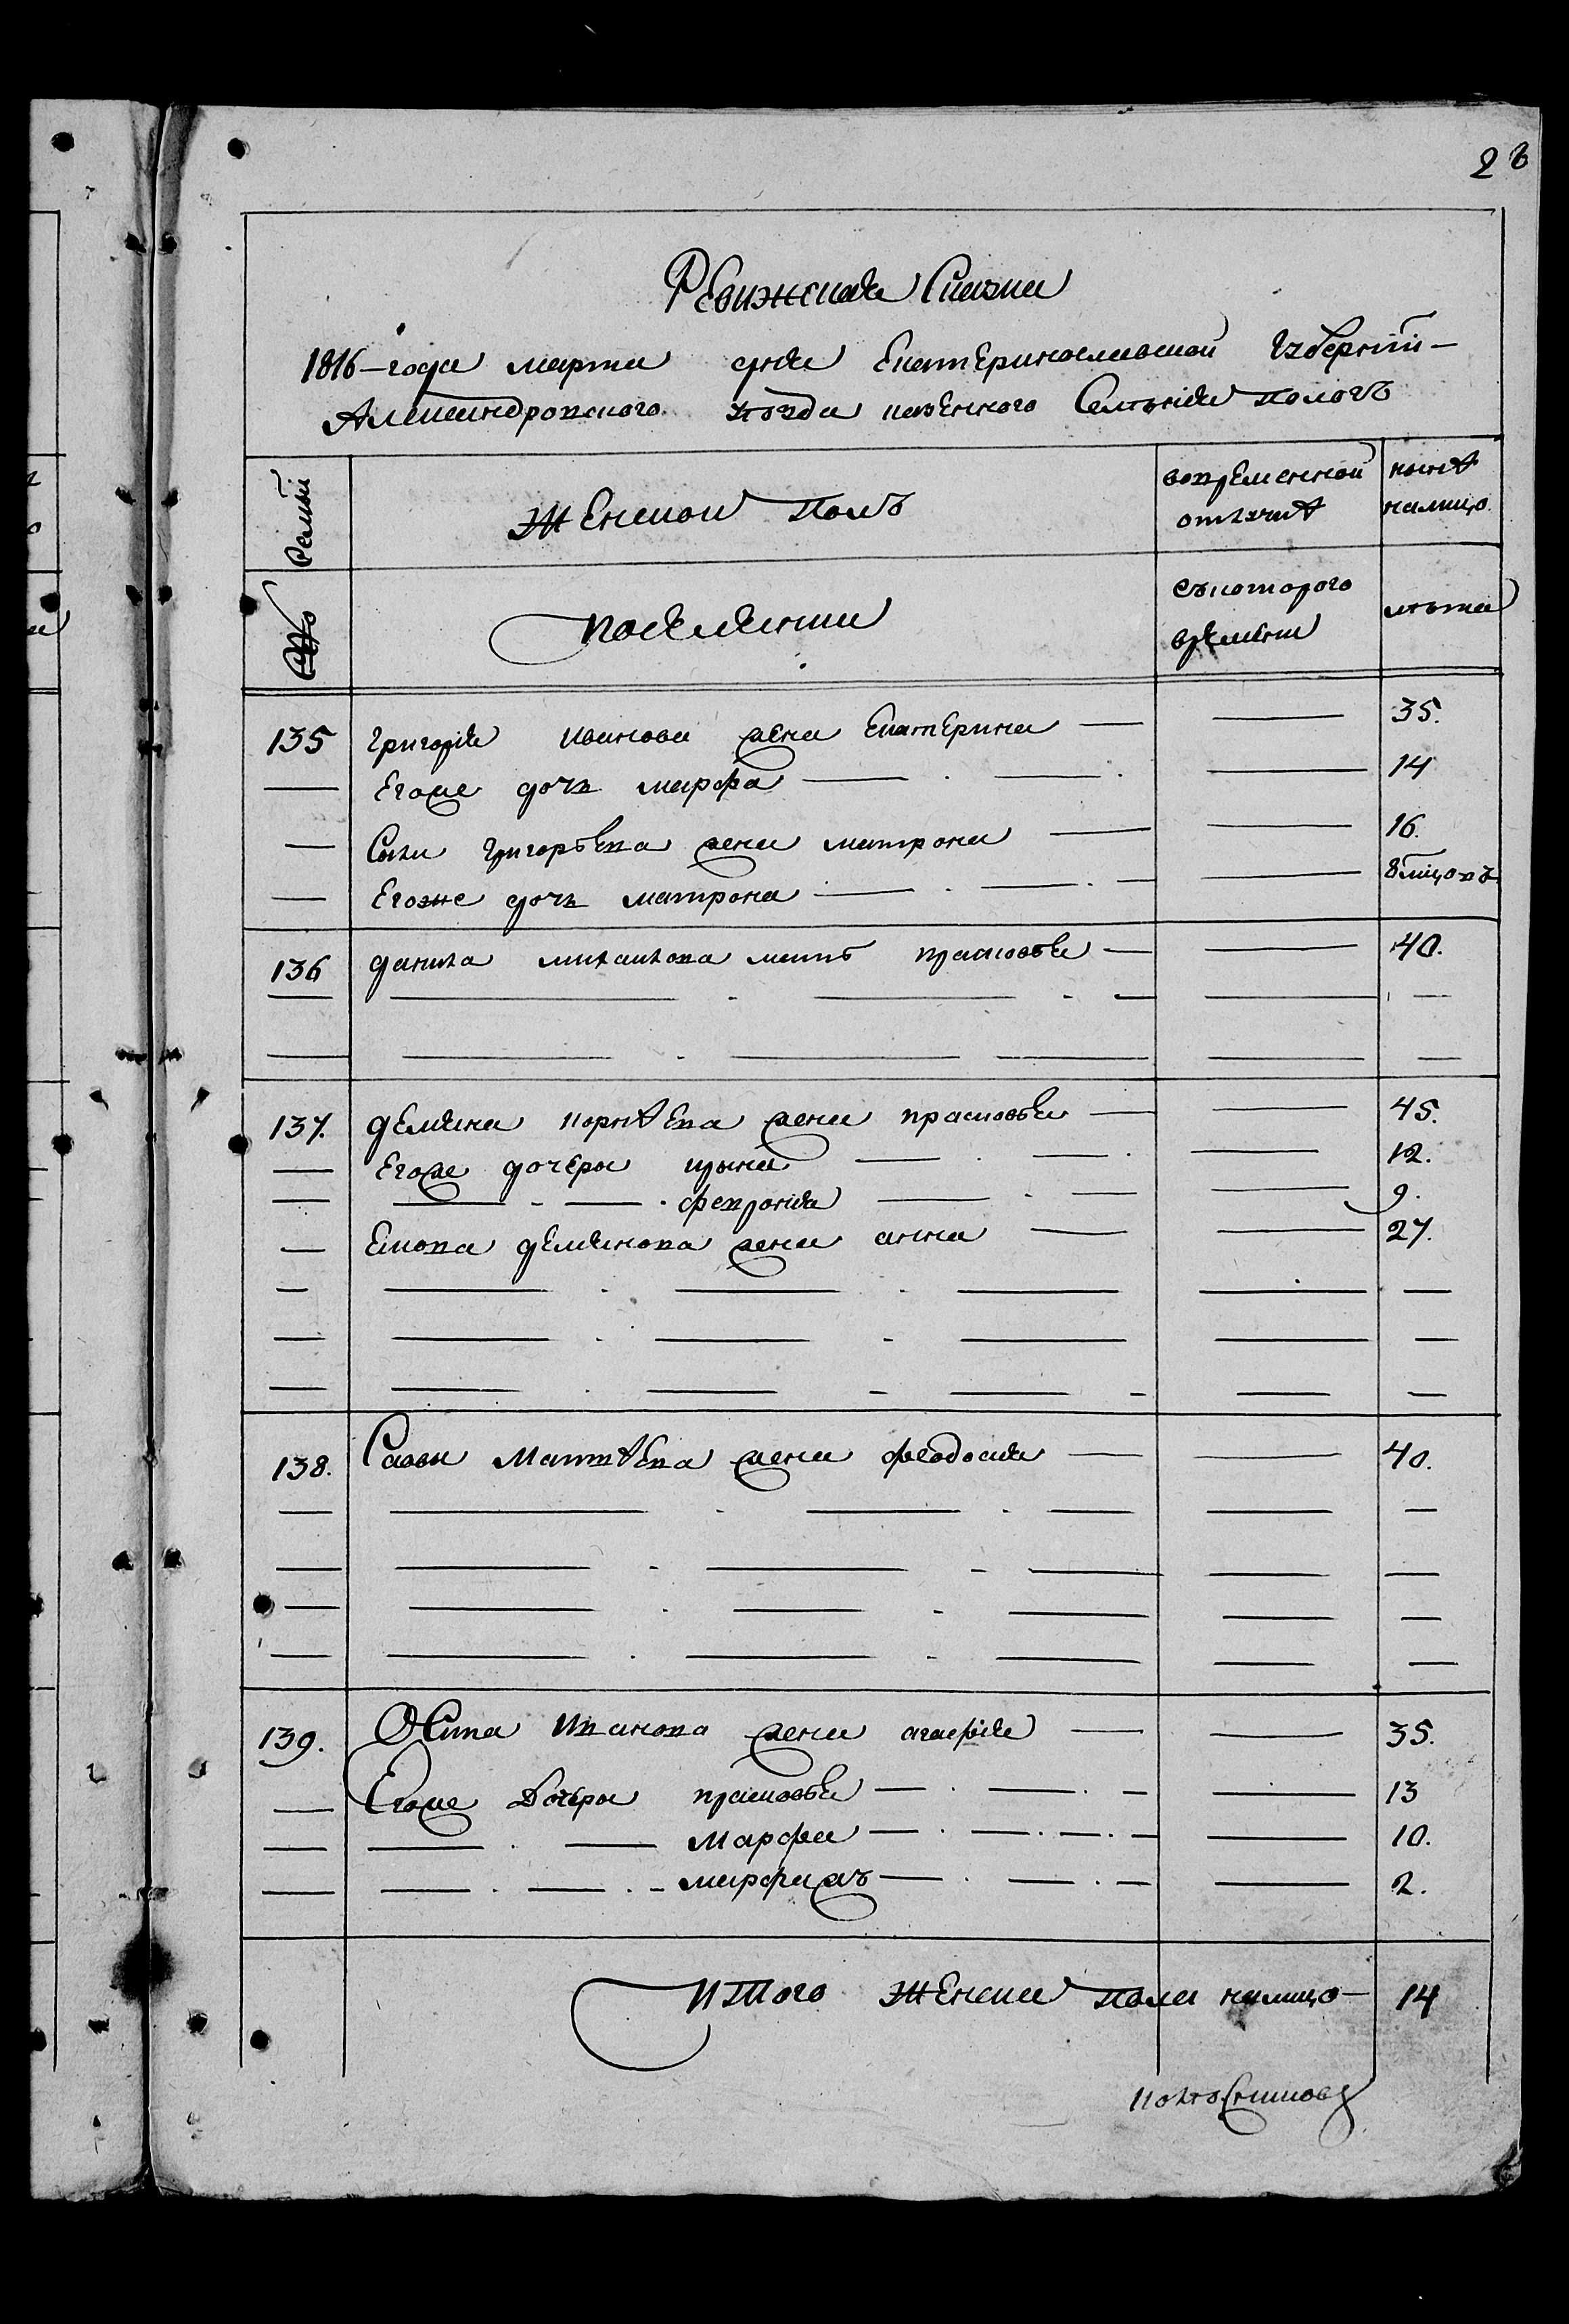 28
Ревижская Сказка
1816-года марта дня Екатеринославской Губернїи-
Александровского уѣзда казенного Селѣния пологъ
Семьи Женской полъ вовременной отлучкѣ нынѣ налицо
№ поселянки скоторого времѣни лѣта
135 григорія иванова жена Екатерина — — 35.
— Егоже дочь марфа — — 14
— Савы григорьева жена матрона — — 16.
— Егоже дочь матрона — — 8 мцовъ
136 данила михаилова мать прасковья — — 40.
— — — —
— — — —
137. демяна корнѣева жена прасковья — — 45.
— Егоже дочеры ирына — — 12.
— — — феврония — — 9.
— Якова демянова жена анна — — 27.
— — — —
— — — —
— — — —
138. Савы Матвѣева жена феодосия — — 40.
— — — —
— — — —
— — — —
— — — —
139. Осипа иванова жена агафия — — 35.
— Егоже дочеры прасковья — — 13
— — — Марфа — — 10.
— — — марфа жъ — — 2.
итого женска пола налицо — 14